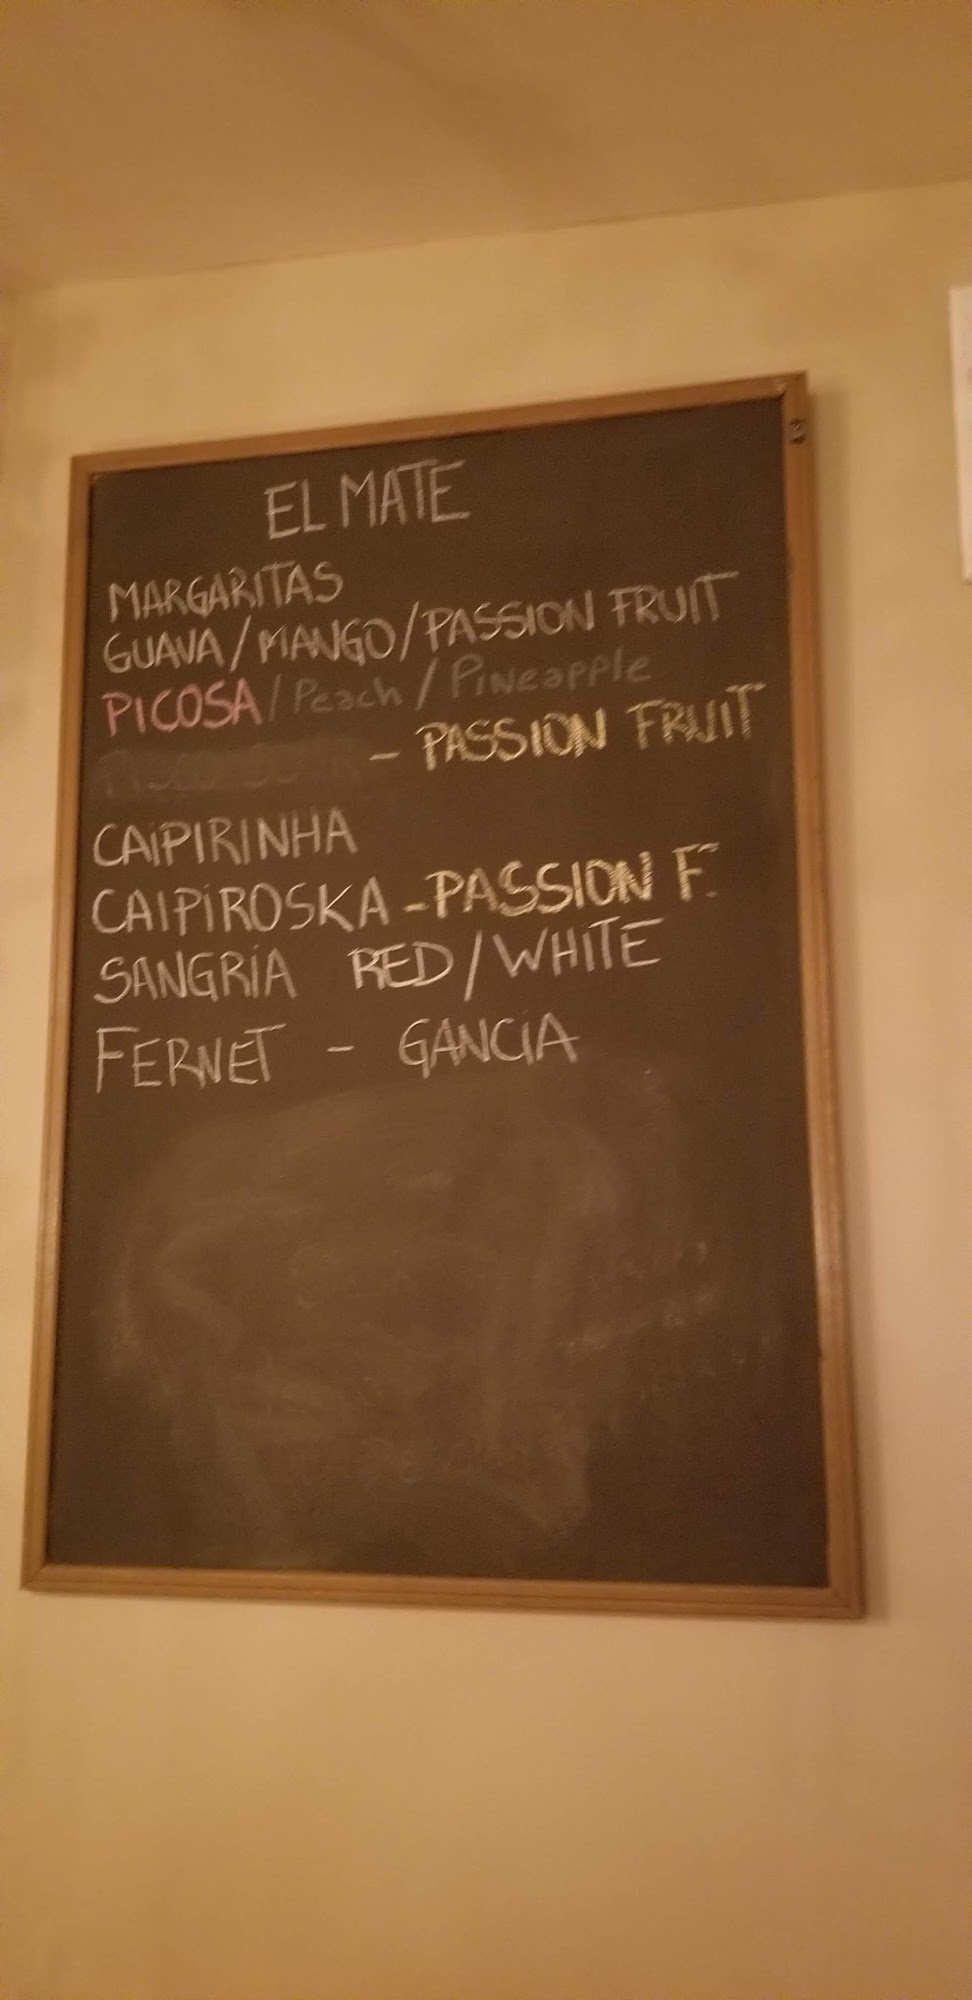 EL MATE
MARGARITAS
GUAVA/MANGO/PASSION FRUIT
PICOSA/Peach/Pineapple
- PASSION FRUIT
CAIPIRINHA
CAIPIROSKA-PASSION F.
SANGRÍA RED/WHITE
FERNET - GANCIA